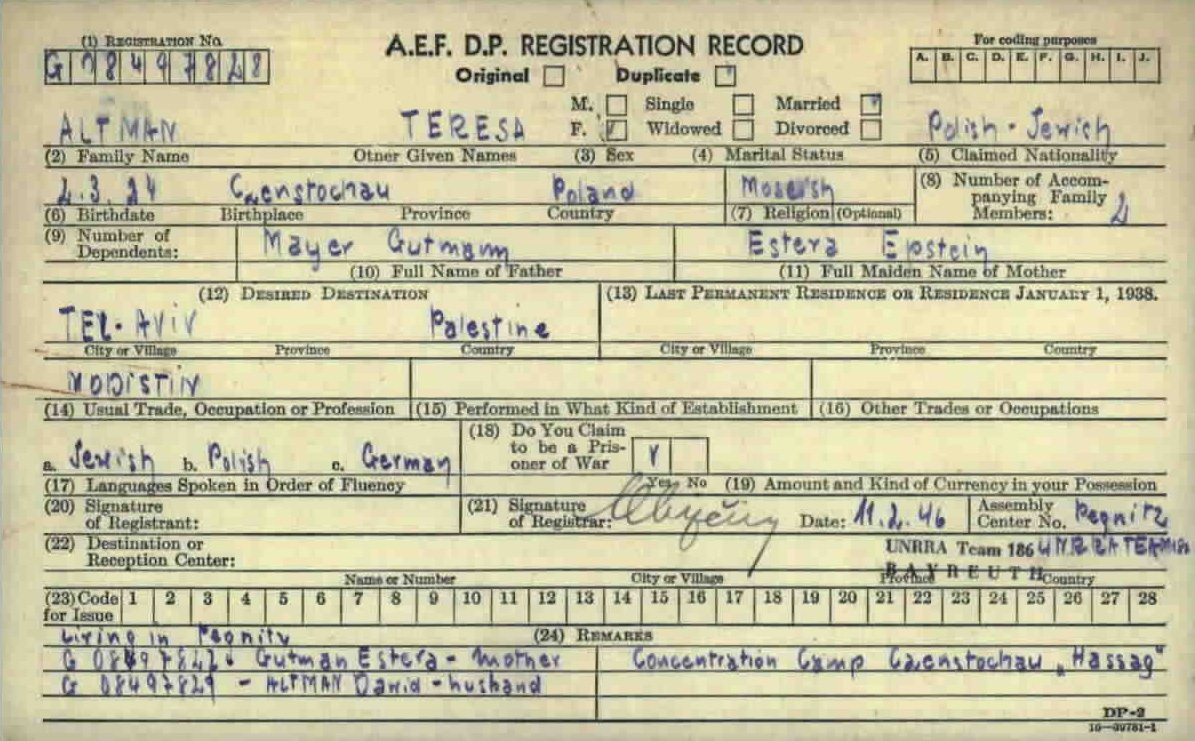 (1) REGISTRATION NO.
A.E.F. D.P. REGISTRATION RECORD
For coding purposes
G 08497828
Original Duplicate
A. B. C. D. E. F. G. H. I. J.
M. Single Married
ALTMAN TERESA F. Widowed Divorced Polish - Jewish
(2) Family Name Other Given Names (3) Sex (4) Marital Status (5) Claimed Nationality
2.3.24 Czenstochau Poland (8) Number of Accompanying Family Members: 2
(6) Birthdate Birthplace Province Country (7) Religion (Optional)
(9) Number of Dependents: Mayer Gutmann Estera Epstein
(10) Full Name of Father (11) Full Maiden Name of Mother
(12) DESIRED DESTINATION (13) LAST PERMANENT RESIDENCE OR RESIDENCE JANUARY 1, 1938.
TEL-AVIV Palestine
City or Village Province Country City or Village Province Country
MODISTIN
(14) Usual Trade, Occupation or Profession (15) Performed in What Kind of Establishment (16) Other Trades or Occupations
(18) Do You Claim to be a Prisoner of War
a. Jewish b. Polish c. German
Yes No
(17) Languages Spoken in Order of Fluency (19) Amount and Kind of Currency in your Possession
(20) Signature of Registrant: (21) Signature of Registrar: Date: 11.2.46 Assembly Center No. Pegnitz
(22) Destination or Reception Center: UNRRA Team 186 UNRRA TEAM 186
BAYREUTH
Name or Number City or Village Province Country
(23) Code for Issue 1 2 3 4 5 6 7 8 9 10 11 12 13 14 15 16 17 18 19 20 21 22 23 24 25 26 27 28
Living in Pegnitz (24) REMARKS
Gutman Estera - mother Concentration Camp Czenstochau „Hassag"
G 08497829 - ALTMAN Dawid - husband
DP-2
16-39781-1